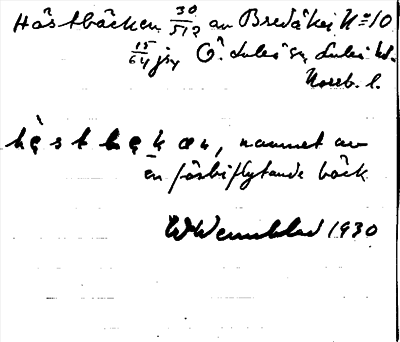 Hästbäcken 30/512 av Bredåker N=10
15/64 jry Ö. Luleå sn Luleå td.
Norrb. l.
hè̜stbękæn, namnet av
en förbiflytande bäck
W Wennblad 1930